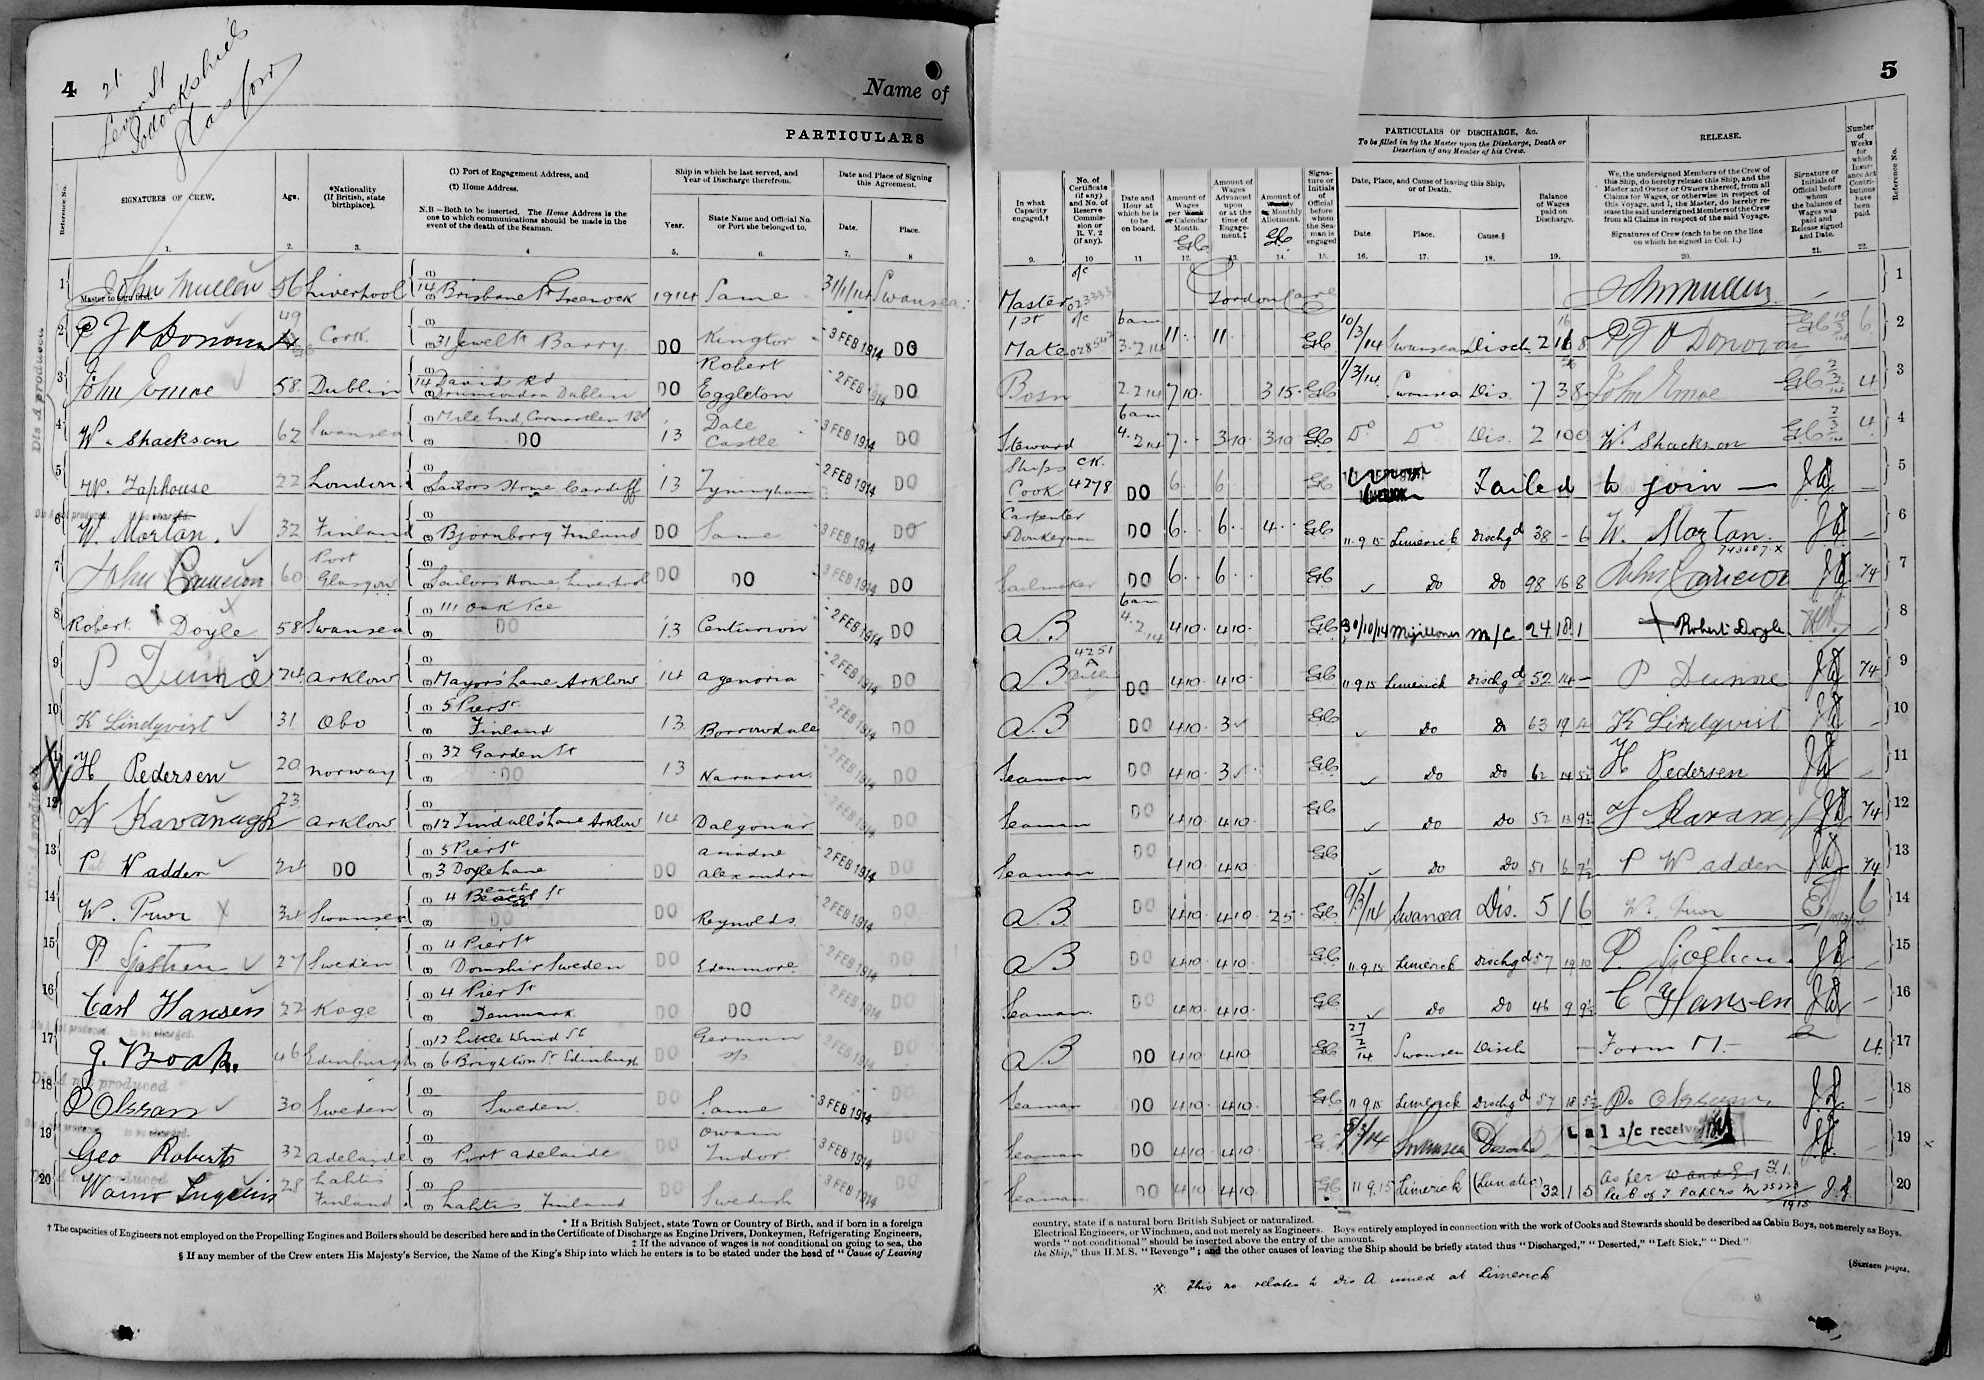 4
21
Glasgow
Name of
PARTICULARS
Reference No.
SIGNATURES OF CREW.
Age.
*Nationality (If British, state birthplace).
(1) Port of Engagement Address, and
(2) Home Address.
N.B.—Both to be inserted. The Home Address is the one to which communications should be made in the event of the death of the Seaman.
Ship in which he last served, and Year of Discharge therefrom.
Year.
State Name and Official No. or Port she belonged to.
Date and Place of Signing this Agreement.
Date.
Place.
1. 2. 3. 4 5. 6. 7. 8
1 John Mullen 56 Liverpool 14 Brisbane St Greenock 1914 Same 31/1/14 Swansea
Master to sign first.
2 P J O'Donovan 49 Cork 31 Jewel St Barry DO Kington -3 FEB 1914 DO
3 John Emoe 58 Dublin 14 David Rd Drumcondra Dublin DO Robert Eggleton -2 FEB 1914 DO
4 W. Shackson 62 Swansea Mile End, Carmarthen Rd DO 13 Dale Castle -3 FEB 1914 DO
5 W. Taphouse 22 London Sailors Home Cardiff 13 Tyningham -2 FEB 1914 DO
6 W. Morton 32 Finland Bjornborg Finland DO Same -3 FEB 1914 DO
7 John Cameron 60 Port Glasgow Sailors Home, Liverpool DO DO -3 FEB 1914 DO
8 Robert X Doyle 58 Swansea 111 Oak Tce DO 13 Centurion -2 FEB 1914 DO
9 P Dunne 24 Arklow Mayors Lane Arklow 14 Agenoria -2 FEB 1914 DO
10 K Lindqvist 31 Obo 5 Pier St Finland 13 Borrowdale -2 FEB 1914 DO
11 H Pedersen 20 Norway 32 Garden St DO 13 -2 FEB 1914 DO
12 W Kavanagh 23 Arklow 12 Tindalls Lane Arklow 14 Dalgonar -2 FEB 1914 DO
13 P Wadden 24 DO 5 Pier St 3 Doyle Lane DO Ariadne Alexandra -2 FEB 1914 DO
14 W. Prior X 34 Swansea 4 Beach St DO DO Reynolds -2 FEB 1914 DO
15 P 27 Sweden 4 Pier St Sweden DO Edenmore -2 FEB 1914 DO
16 Carl Hansen 22 Koge 4 Pier St Denmark DO DO 2 FEB 1914 DO
17 J. Boak. 46 Edinburgh 12 Little Wind St 6 Brighton St Edinburgh DO German S/S 2 FEB 1914 DO
18 P Olssan 30 Sweden Sweden DO Same -3 FEB 1914 DO
19 Geo Roberts 32 Adelaide Port Adelaide Owain Tudor -3 FEB 1914 DO
20 28 Lahtis Finland Lahtis Finland DO Swedish -3 FEB 1914 DO
Dis A produced
Dis A not produced
to be charged.
* If a British Subject, state Town or Country of Birth, and if born in a foreign
† The capacities of Engineers not employed on the Propelling Engines and Boilers should be described here and in the Certificate of Discharge as Engine Drivers, Donkeymen, Refrigerating Engineers,
‡ If the advance of wages is not conditional on going to sea, the
§ If any member of the Crew enters His Majesty's Service, the Name of the King's Ship into which he enters is to be stated under the head of "Cause of Leaving
5
PARTICULARS OF DISCHARGE, &c.
To be filled in by the Master upon the Discharge, Death or Desertion of any Member of his Crew.
RELEASE.
Number of Weeks for which Insurance Act Contributions have been paid.
Reference No.
In what Capacity engaged.†
No. of Certificate (if any) and No. of Reserve Commission or R. V. 2 (if any).
Date and Hour at which he is to be on board.
Amount of Wages per Week or Calendar Month.
Amount of Wages Advanced upon or at the time of Engagement.‡
Amount of Weekly or Monthly Allotment.
Signature or Initials of Official before whom the Seaman is engaged
Date, Place, and Cause of leaving this Ship, or of Death.
Date
Place.
Cause.§
Balance of Wages paid on Discharge.
We, the undersigned Members of the Crew of this Ship, do hereby release this Ship, and the Master and Owner or Owners thereof, from all Claims for Wages, or otherwise in respect of this Voyage, and I, the Master, do hereby release the said undersigned Members of the Crew from all Claims in respect of the said Voyage.
Signatures of Crew (each to be on the line on which he signed in Col. 1.)
Signature or Initials of Official before whom the balance of Wages was paid and Release signed and Date.
9. 10 11 12. 13. 14. 15. 16. 17. 18. 19. 20. 21. 22.
Master o/c 023333 John Mullen 1
1st Mate o/c 028542 6am 3.2.14 11 11 10/3/14 Swansea Disch P J O'Donovan 6 2
Bosn 2.2.14 7 10 3 15 Swansea Dis. 7 3 8 John Emoe 4 3
Steward 6am 4.2.14 7 3 10 3 10 Do Do Dis. 2 10 0 W. Shackson 4 4
Ships Cook CK. 4278 DO 6 6 Failed to join — 5
Carpenter & Donkeyman DO 6 6 4 11.9.15 Limerick Dischgd 38 - 6 W. Morton 743687 X 6
Sailmaker DO 6 6 Do Do 98 16 8 John Cameron 74 7
AB 6am 4.2.14 4 10 4 10 30/10/14 Mejillones M/C 24 18 1 X Robert Doyle 8
AB 4251 A DO 4 10 4 10 11.9.15 Limerick Dischgd 52 14 - P Dunne 74 9
AB DO 4 10 3 Do Do 63 19 K Lindqvist 10
Seaman DO 4 10 3 Do Do 62 14 H Pedersen 11
Seaman DO 4 10 4 10 Do Do 52 13 9½ W Kavanagh 74 12
Seaman DO 4 10 4 10 Do Do 51 6 7½ P Wadden 74 13
AB DO 4 10 4 10 2 5 9/3/14 Swansea Dis. 5 1 6 W. Prior 6 14
AB DO 4 10 4 10 11.9.15 Limerick Dischgd 57 19 10 P. 15
Seaman DO 4 10 4 10 Do Do 46 9 9½ C Hansen 16
AB DO 4 10 4 10 27/2/14 Swansea Disch — Form M — 4 17
Seaman DO 4 10 4 10 11.9.15 Limerick Dischgd 57 18 5½ P. Olssan 18
Seaman DO 4 10 4 10 Swansea a/c received 19
Seaman DO 4 10 4 10 11.9.15 Limerick (Lunatic) 32 1 5 As per 20
country, state if a natural born British Subject or naturalized.
Electrical Engineers, or Winchmen, and not merely as Engineers. Boys entirely employed in connection with the work of Cooks and Stewards should be described as Cabin Boys, not merely as Boys.
words "not conditional" should be inserted above the entry of the amount.
the Ship," thus H.M.S. "Revenge"; and the other causes of leaving the Ship should be briefly stated thus "Discharged," "Deserted," "Left Sick," "Died."
[Sixteen pages.
X This no relates to Dis A issued at Limerick